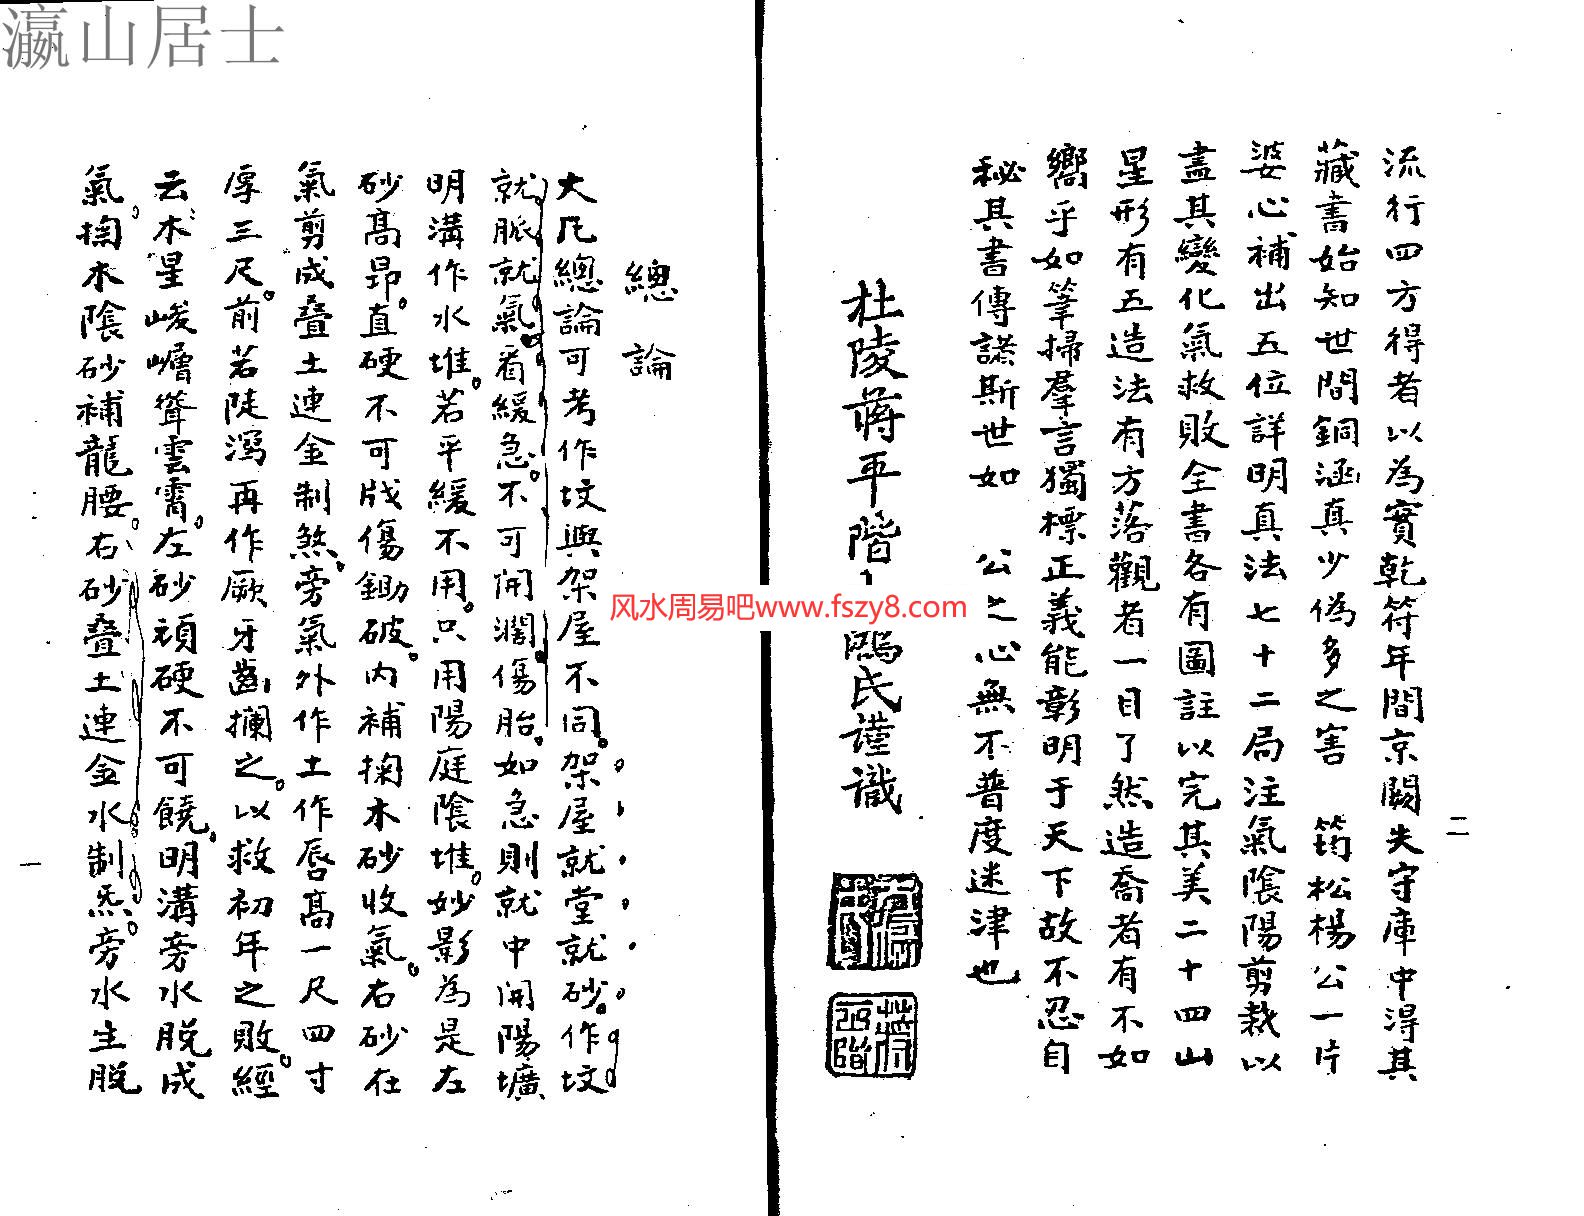 瀛山居士
二
流行四方得者以為實乾符年間京闕失守庫中得其
藏書始知世間銅函真少偽多之害 筠松楊公一片
婆心補出五位詳明真法七十二局注氣陰陽剪裁以
盡其變化氣救敗全書各有圖註以完其美二十四山
星形有五造法有方落觀者一目了然造喬者有不如
嚮乎如筆掃羣言獨標正義能彰明于天下故不忍自
秘其書傳諸斯世如 公之心無不普度迷津也
杜陵蔣平階 氏謹識
蔣平階
風水周易吧www.fszy8.com
總論
大凡總論可考作坟與架屋不同架屋就堂就砂作坟
就脈就氣看緩急不可開濶傷胎如急則就中開陽壙
明溝作水堆若平緩不用只用陽庭陰堆妙影為是左
砂高昂直硬不可戕傷鋤破内補掬木砂收氣右砂在
氣剪成叠土連金制煞旁氣外作土作唇高一尺四寸
厚三尺前若陡瀉再作厥牙齒攔之以救初年之敗經
云木星峻嶒聳雲霄左砂頑硬不可饒明溝旁水脱成
氣掬木陰砂補龍腰右砂叠土連金水制炁旁水生脱
一